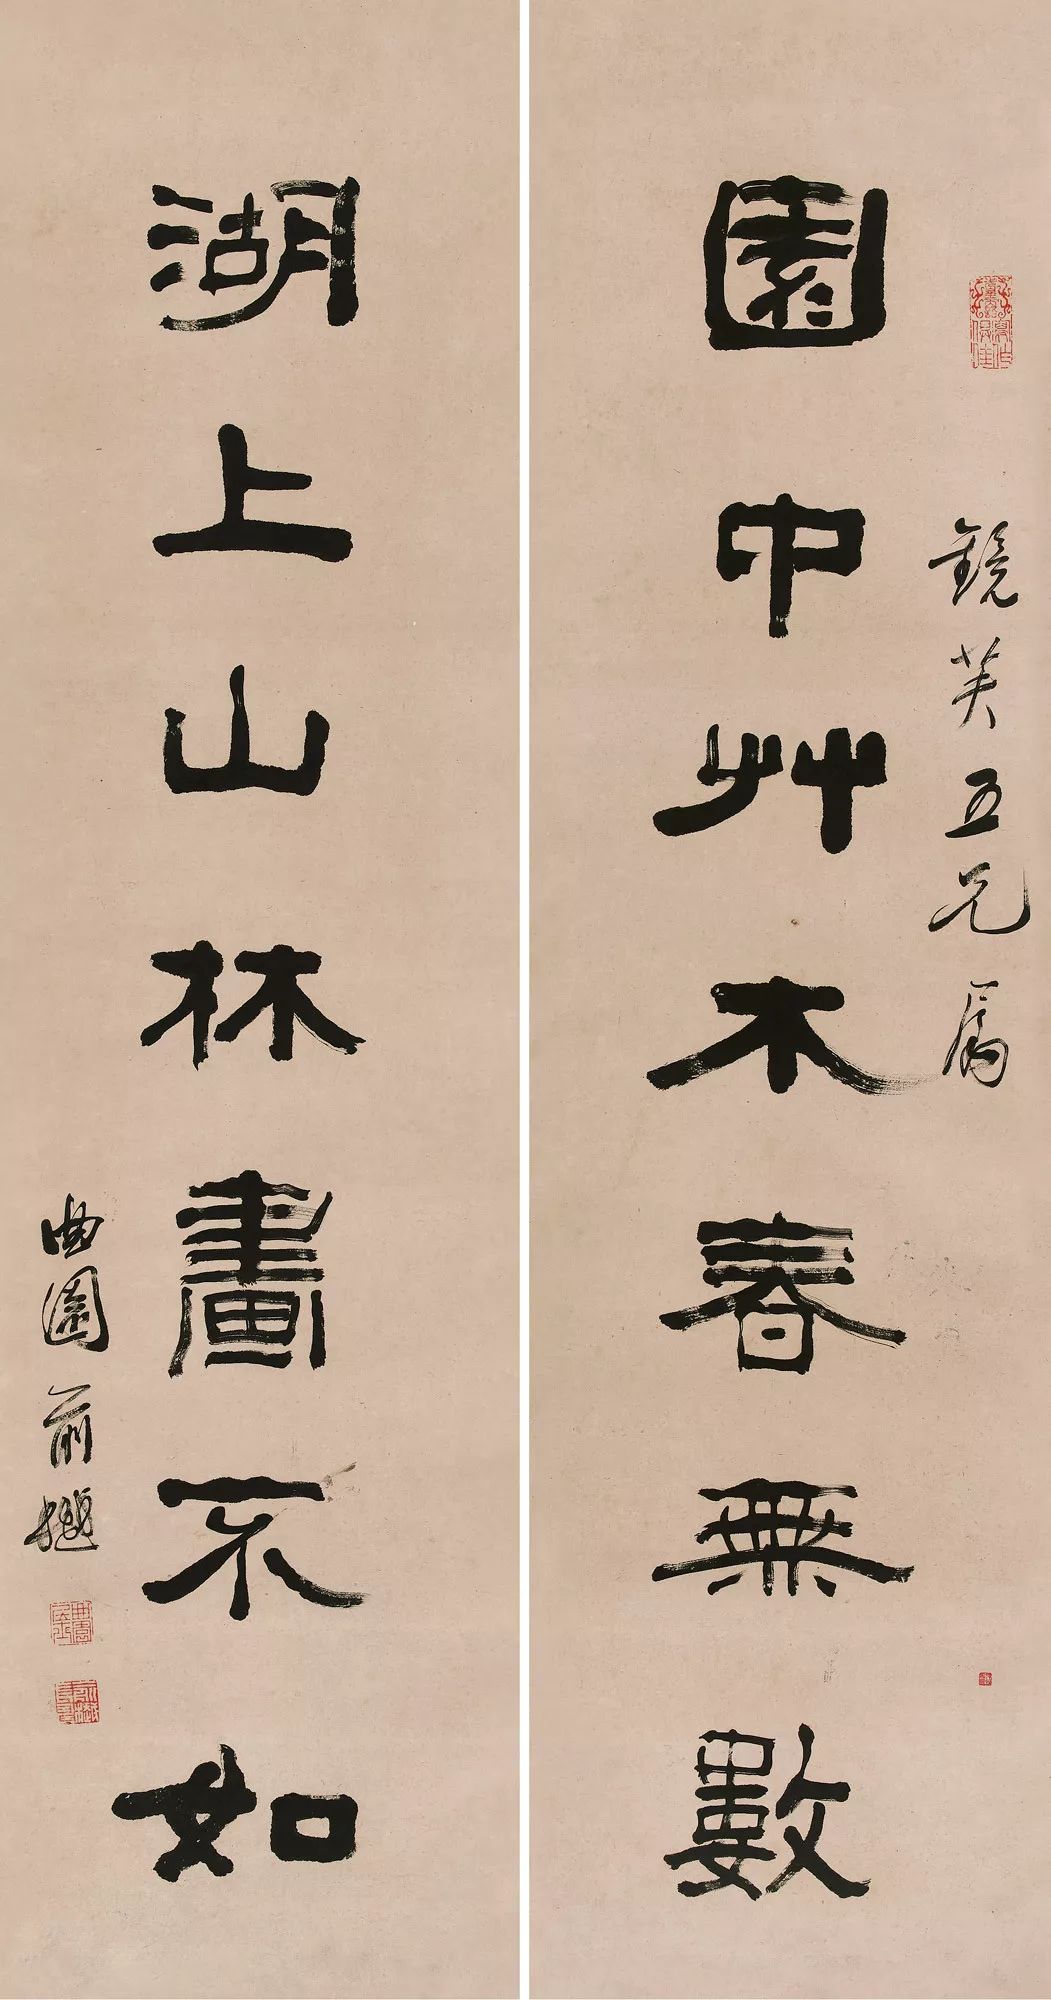 鏡芙五兄屬
園中艸木春無數
湖上山林畫不如
曲園俞樾